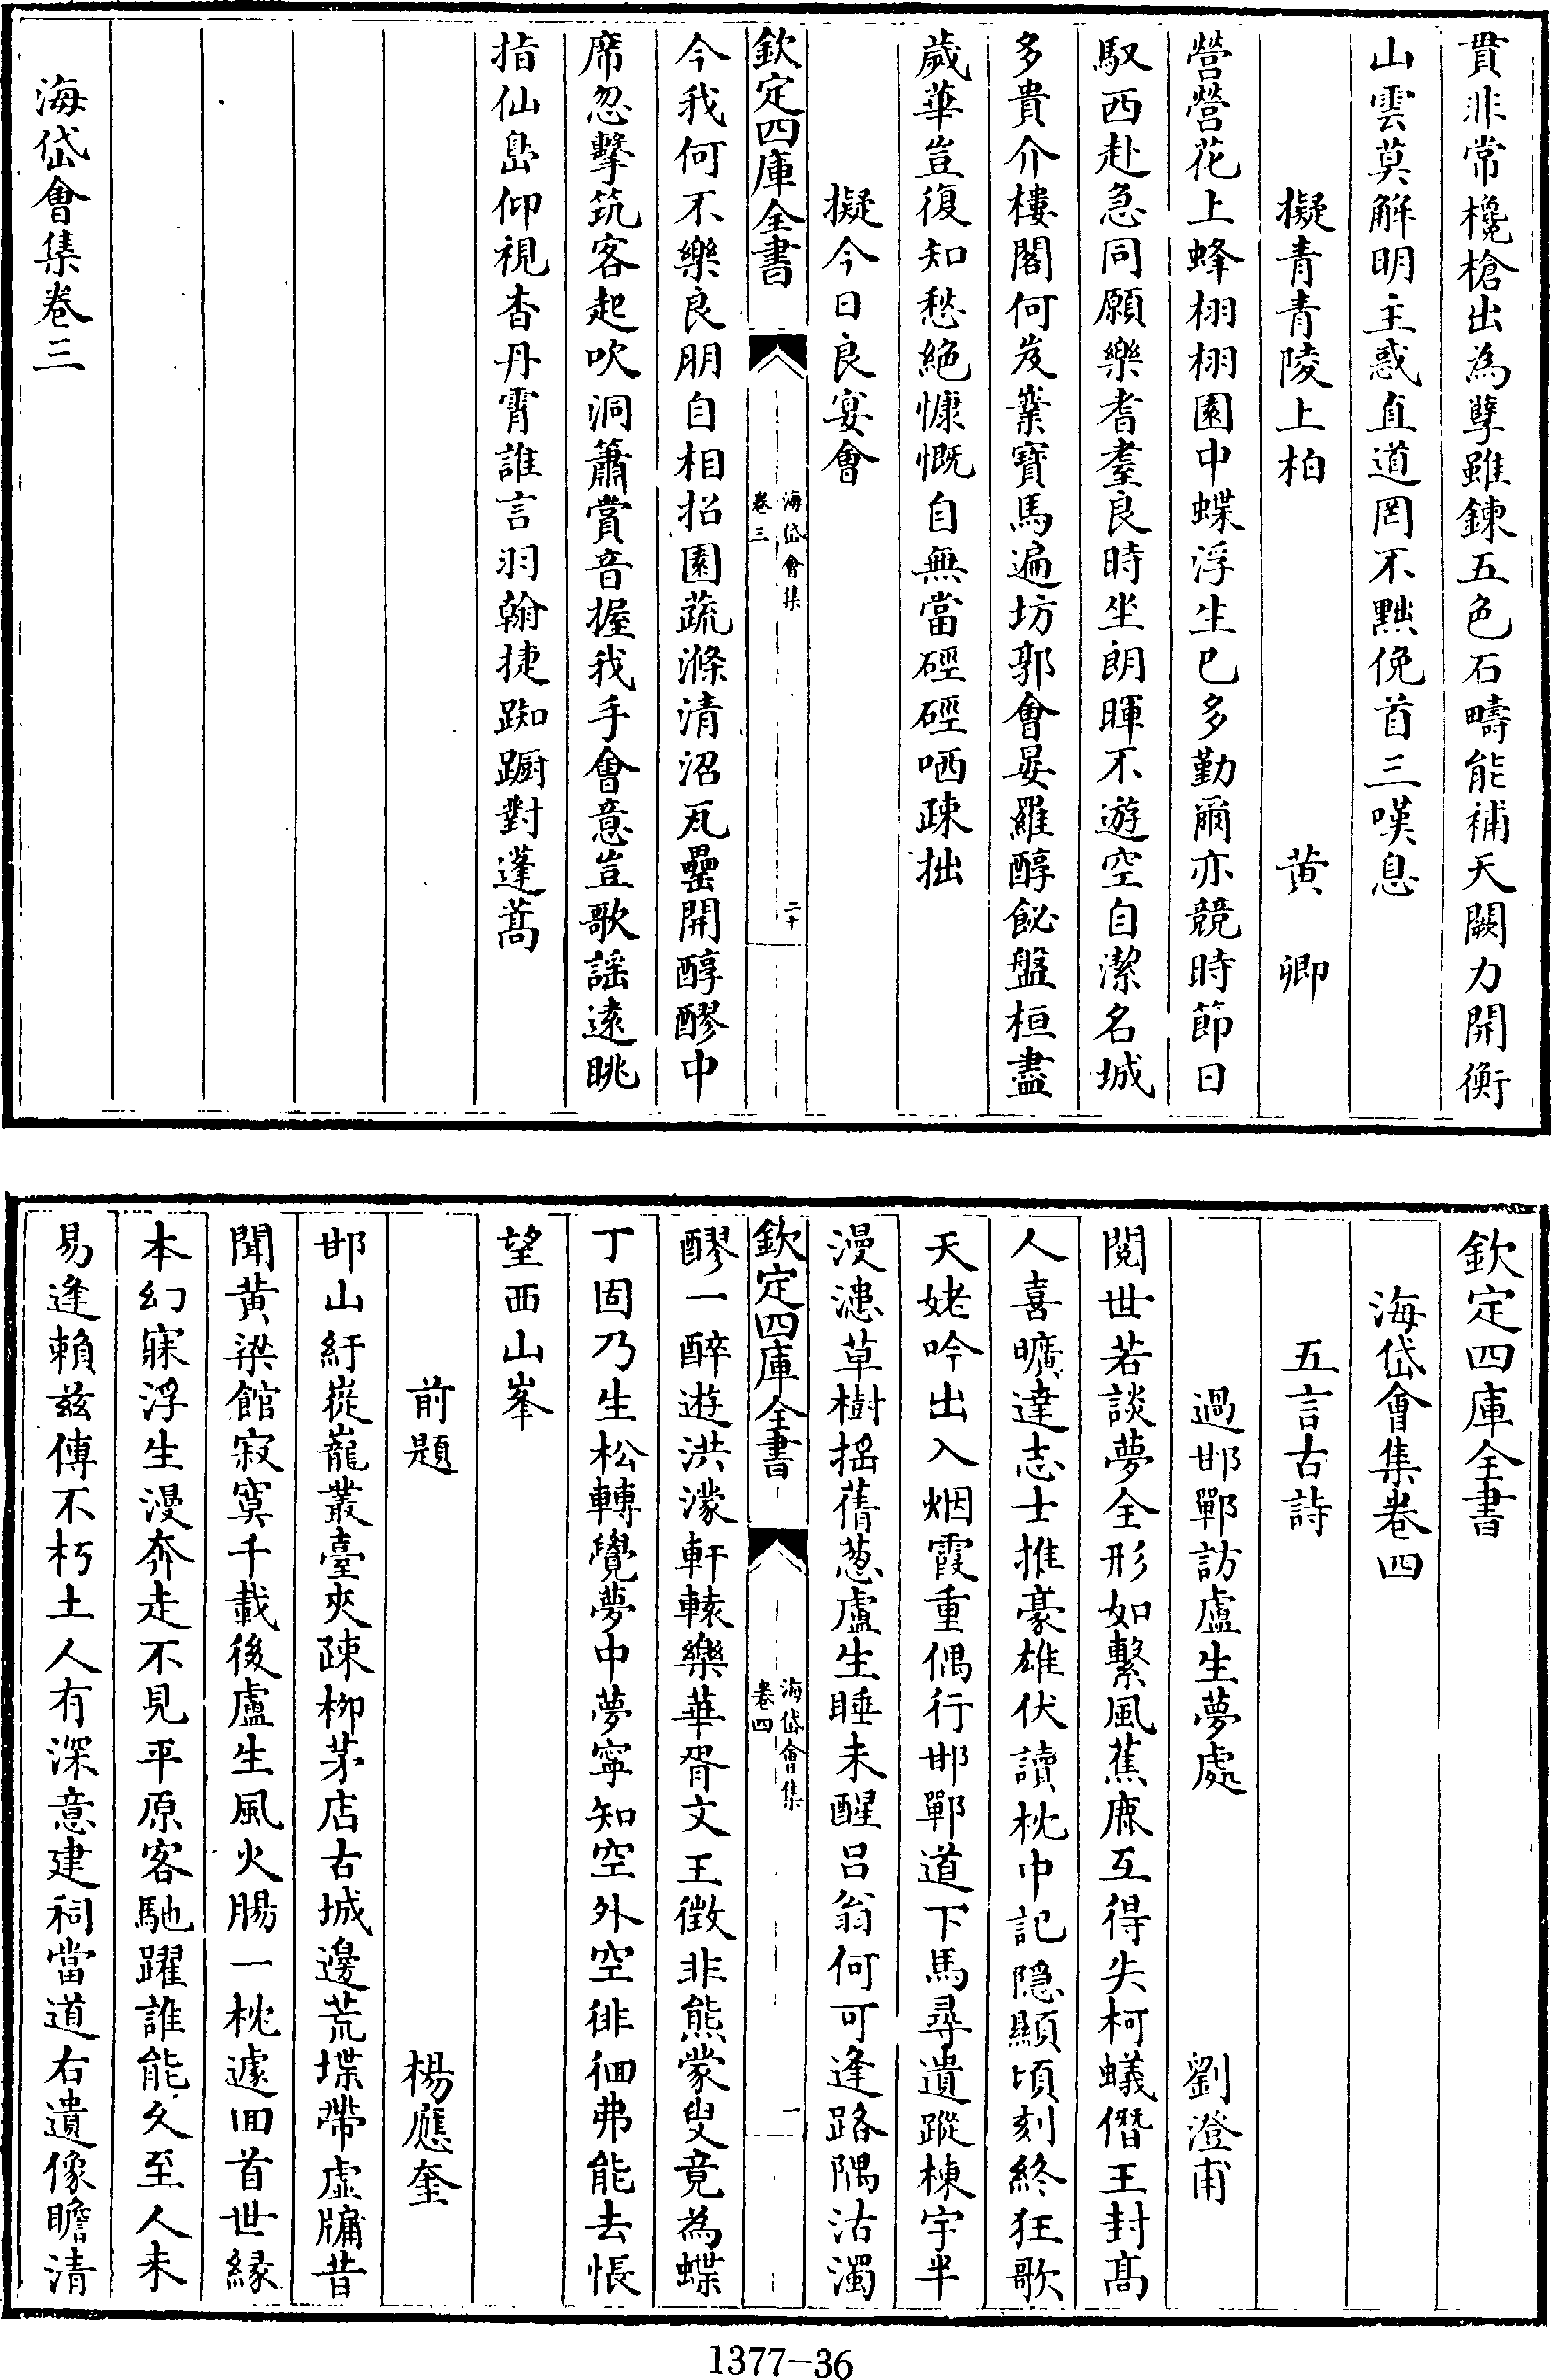 貫非常欃槍出為孽雖鍊五色石疇能補天闕力開衡
山雲莫解明主惑直道罔不黜俛首三嘆息
擬青青陵上柏　黄　卿
營營花上蜂栩栩園中蝶浮生已多勤爾亦競時節日
馭西赴急同願樂耆耋良時坐朗暉不遊空自潔名城
多貴介樓閣何岌嶪寶馬遍坊郭會晏羅醇飶盤桓盡
歲華豈復知愁絶慷慨自無當硜硜哂疎拙
擬今日良宴會
欽定四庫全書　海岱會集卷三　二十
今我何不樂良朋自相招園蔬滌清沼瓦罍開醇醪中
席忽擊筑客起吹洞簫賞音握我手會意豈歌謡遠眺
指仙島仰視杳丹霄誰言羽翰捷踟蹰對蓬蒿
海岱會集卷三
欽定四庫全書
海岱會集卷四
五言古詩
過邯鄲訪盧生夢處　劉澄甫
閱世若談夢全形如繫風蕉鹿互得失柯蟻僭王封髙
人喜曠達志士推豪雄伏讀枕中記隠顯頃刻終狂歌
天姥吟出入烟霞重偶行邯鄲道下馬尋遺蹤棟宇半
漫漶草樹揺蒨葱盧生睡未醒吕翁何可逢路隅沽濁
欽定四庫全書　海岱會集卷四　一
醪一醉遊洪濛軒轅樂華胥文王徴非熊蒙叟竟為蝶
丁固乃生松轉覺夢中夢寜知空外空徘徊弗能去悵
望西山峯
前題　楊應奎
邯山紆嵸巃叢臺夾疎栁茅店古城邊荒堞帶虚牖昔
聞黄粱館寂寞千載後盧生風火腸一枕遽回首世縁
本幻寐浮生漫奔走不見平原客馳躍誰能久至人未
易逢賴兹傳不朽土人有深意建祠當道右遺像瞻清
1377-36